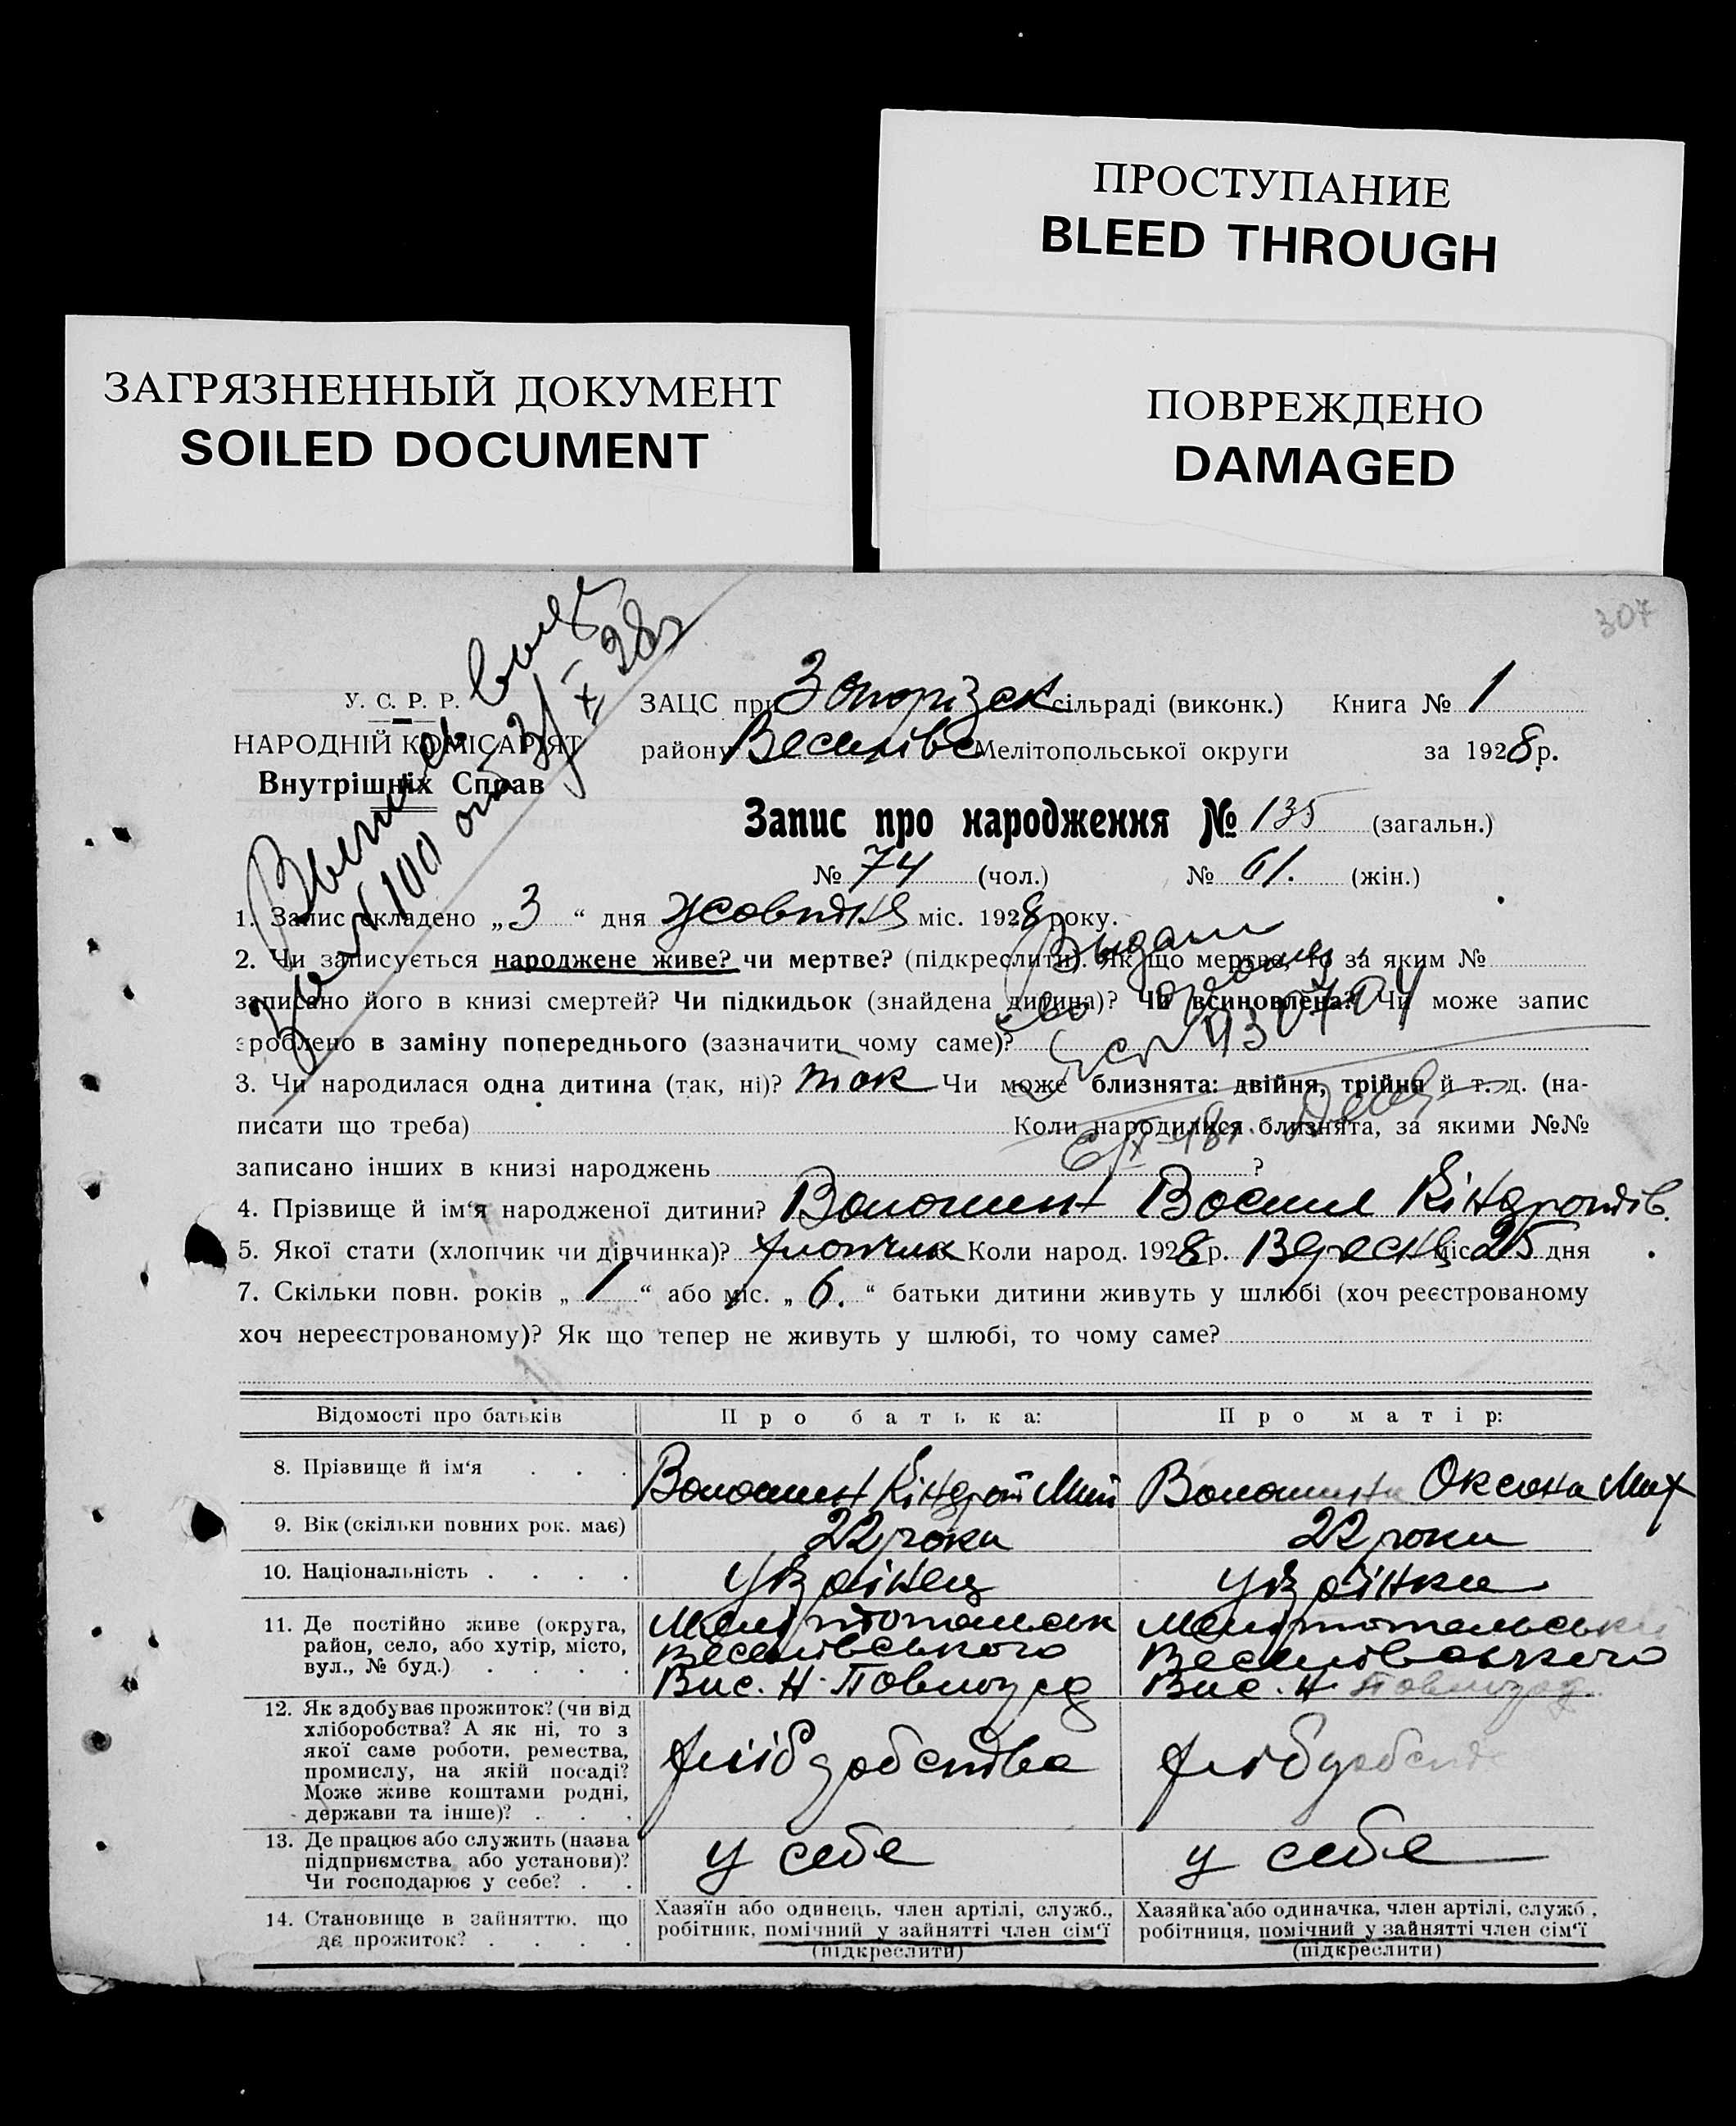 ПРОСТУПАНИЕ
BLEED THROUGH
ЗАГРЯЗНЕННЫЙ ДОКУМЕНТ
SOILED DOCUMENT
ПОВРЕЖДЕНО
DAMAGED
307
У. С. Р. Р.
НАРОДНІЙ КОМІСАРІЯТ
Внутрішніх Справ
100 от 31/X 28г
ЗАЦС при Запорізск сільраді (виконк.) Книга № 1
району Веселівс Мелітопольської округи за 1928 р.
Запис про народження № 135 (загальн.)
№ 74 (чол.) № 61. (жін.)
1. Запис складено „3“ дня жовтня міс. 1928 року.
2. Чи записується народжене живе? чи мертве? (підкреслити). Як що мертве, то за яким №
записано його в книзі смертей? Чи підкидьок (знайдена дитина)? Чи всиновлена? Чи може запис
зроблено в заміну попереднього (зазначити чому саме)?
Выдан
3. Чи народилася одна дитина (так, ні)? так Чи може близнята: двійня, трійня й т. д. (на-
писати що треба) Коли народилися близнята, за якими №№
записано інших в книзі народжень ?
4. Прізвище й ім‘я народженої дитини? Волошин Василь Кіндратів.
5. Якої стати (хлопчик чи дівчинка)? хлопчик Коли народ. 1928 р. Вересня міс. 25 дня
7. Скільки повн. років „1“ або міс. „6.“ батьки дитини живуть у шлюбі (хоч реєстрованому
хоч нереєстрованому)? Як що тепер не живуть у шлюбі, то чому саме?
Відомості про батьків Про батька: Про матір:
8. Прізвище й ім‘я . . . Волошин Кіндрат Мит Волошина Оксана Мих
9. Вік (скільки повних рок. має) 22 роки 22 роки
10. Національність . . . . Українец Українка
11. Де постійно живе (округа,
район, село, або хутір, місто,
вул., № буд.) . . . .
Мелітопольськ
Веселівського
Вис. Н-Павлоград
Мелітопольськ
Веселівського
Вис. Н Павлоград
12. Як здобуває прожиток? (чи від
хліборобства? А як ні, то з
якої саме роботи, ремества,
промислу, на якій посаді?
Може живе коштами родні,
держави та інше)? . . .
хлібробства хлібробств
13. Де працює або служить (назва
підприємства або установи)?
Чи господарює у себе? . .
у себе у себе
14. Становище в зайняттю, що
дє прожиток? . . . .
Хазяїн або одинець, член артілі, служб.,
робітник, помічний у зайнятті член сім‘ї
(підкреслити)
Хазяйка або одиначка, член артілі, служб.,
робітниця, помічний у зайнятті член сім‘ї
(підкреслити)